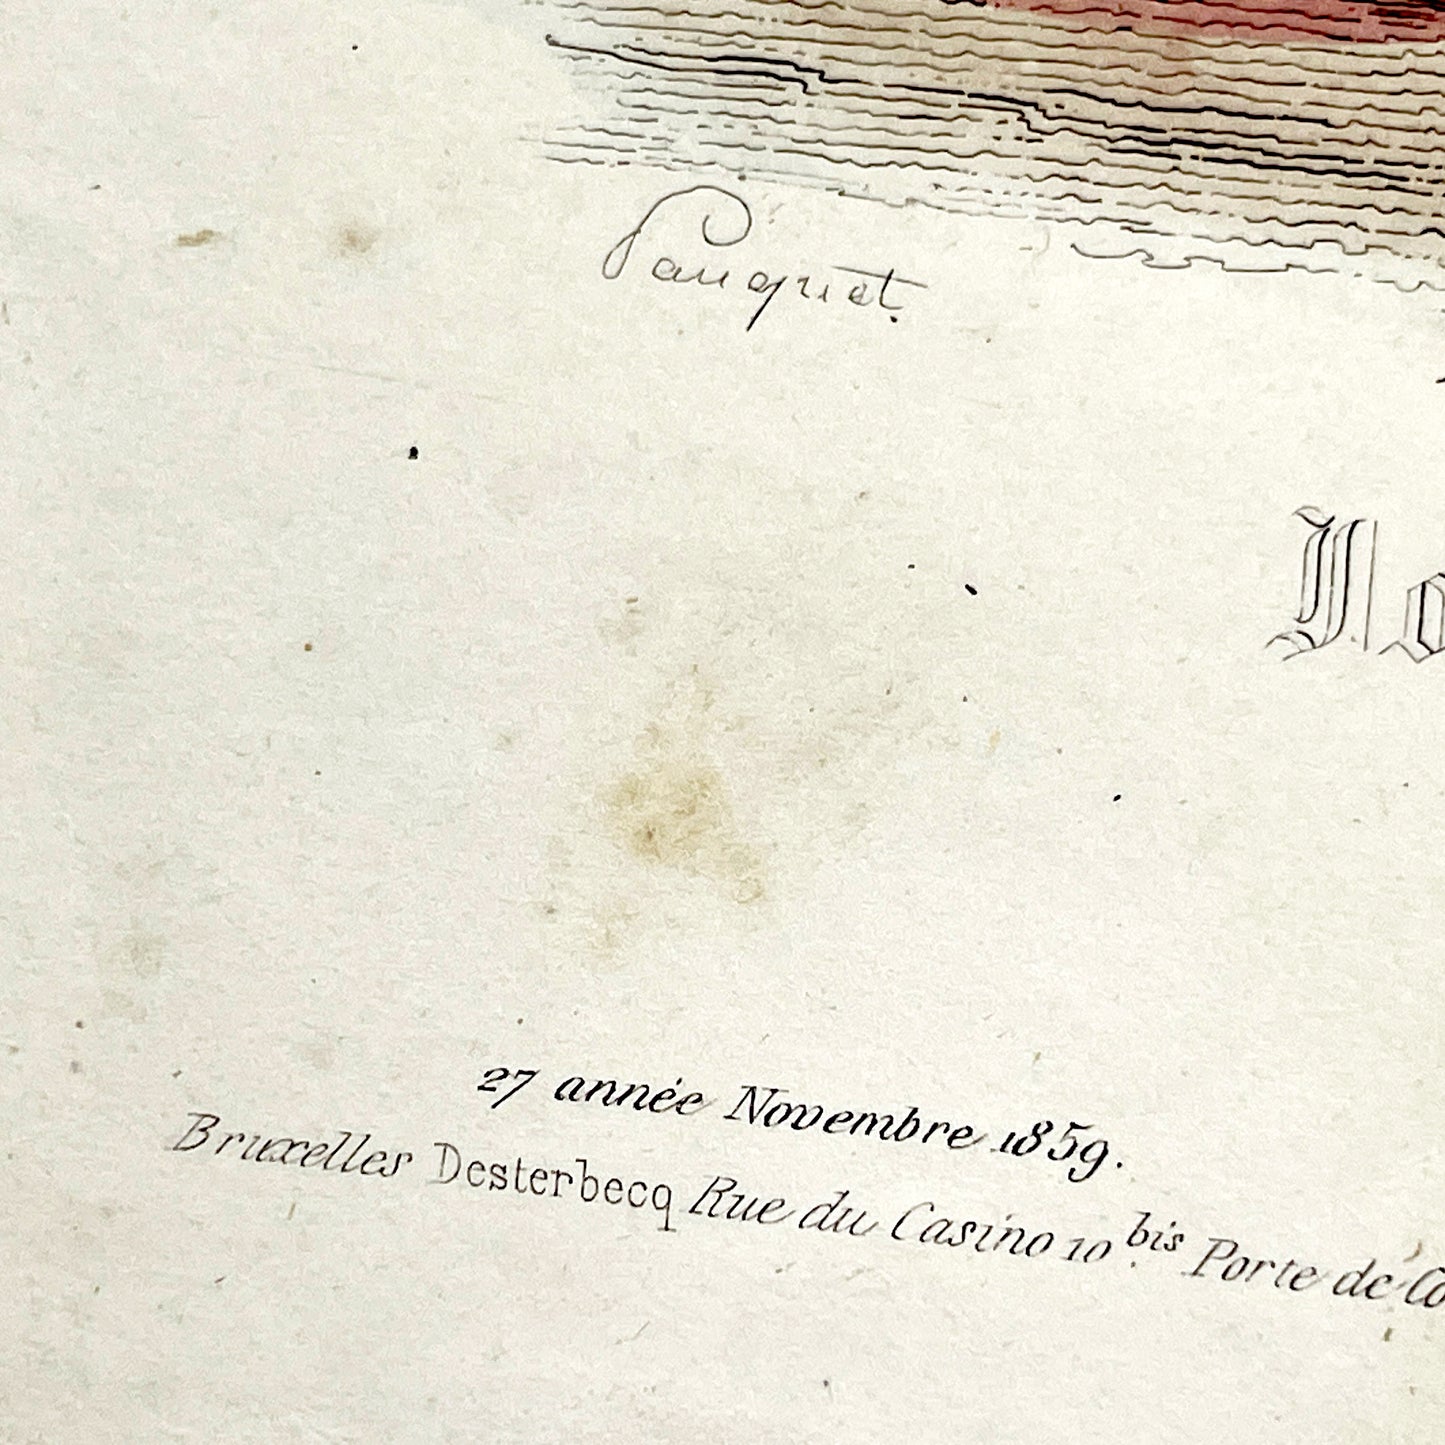 Pauquet.
27 année Novembre 1859.
Bruxelles Desterbecq Rue du Casino 10 bis Porte de